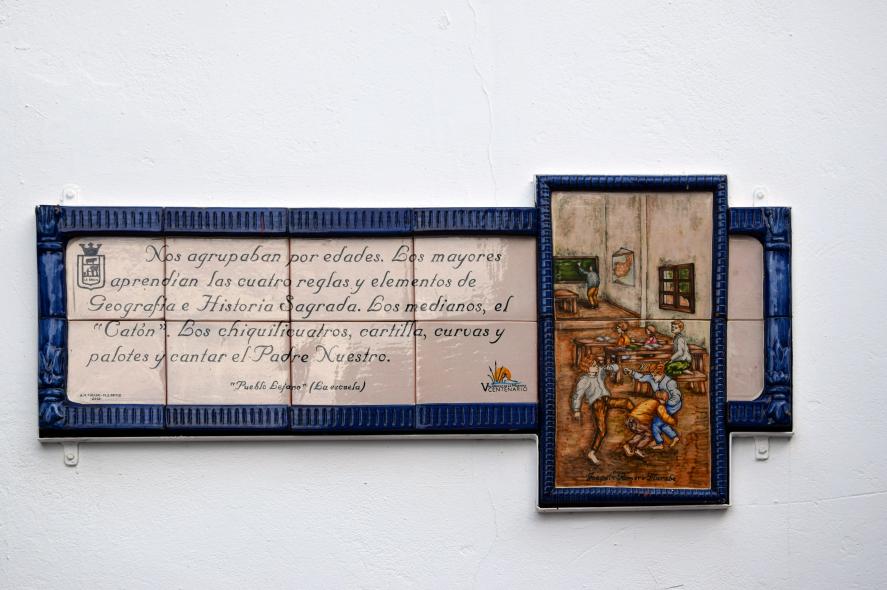 Nos agrupaban por edades. Los mayores
aprendían las cuatro reglas y elementos de
Geografía e Historia Sagrada. Los medianos, el
"Catón". Los chiquilicuatros, cartilla, curvas y
palotes y cantar el Padre Nuestro.
"Pueblo Lejano" (La escuela)
V CENTENARIO
Joaquín Romero Murube